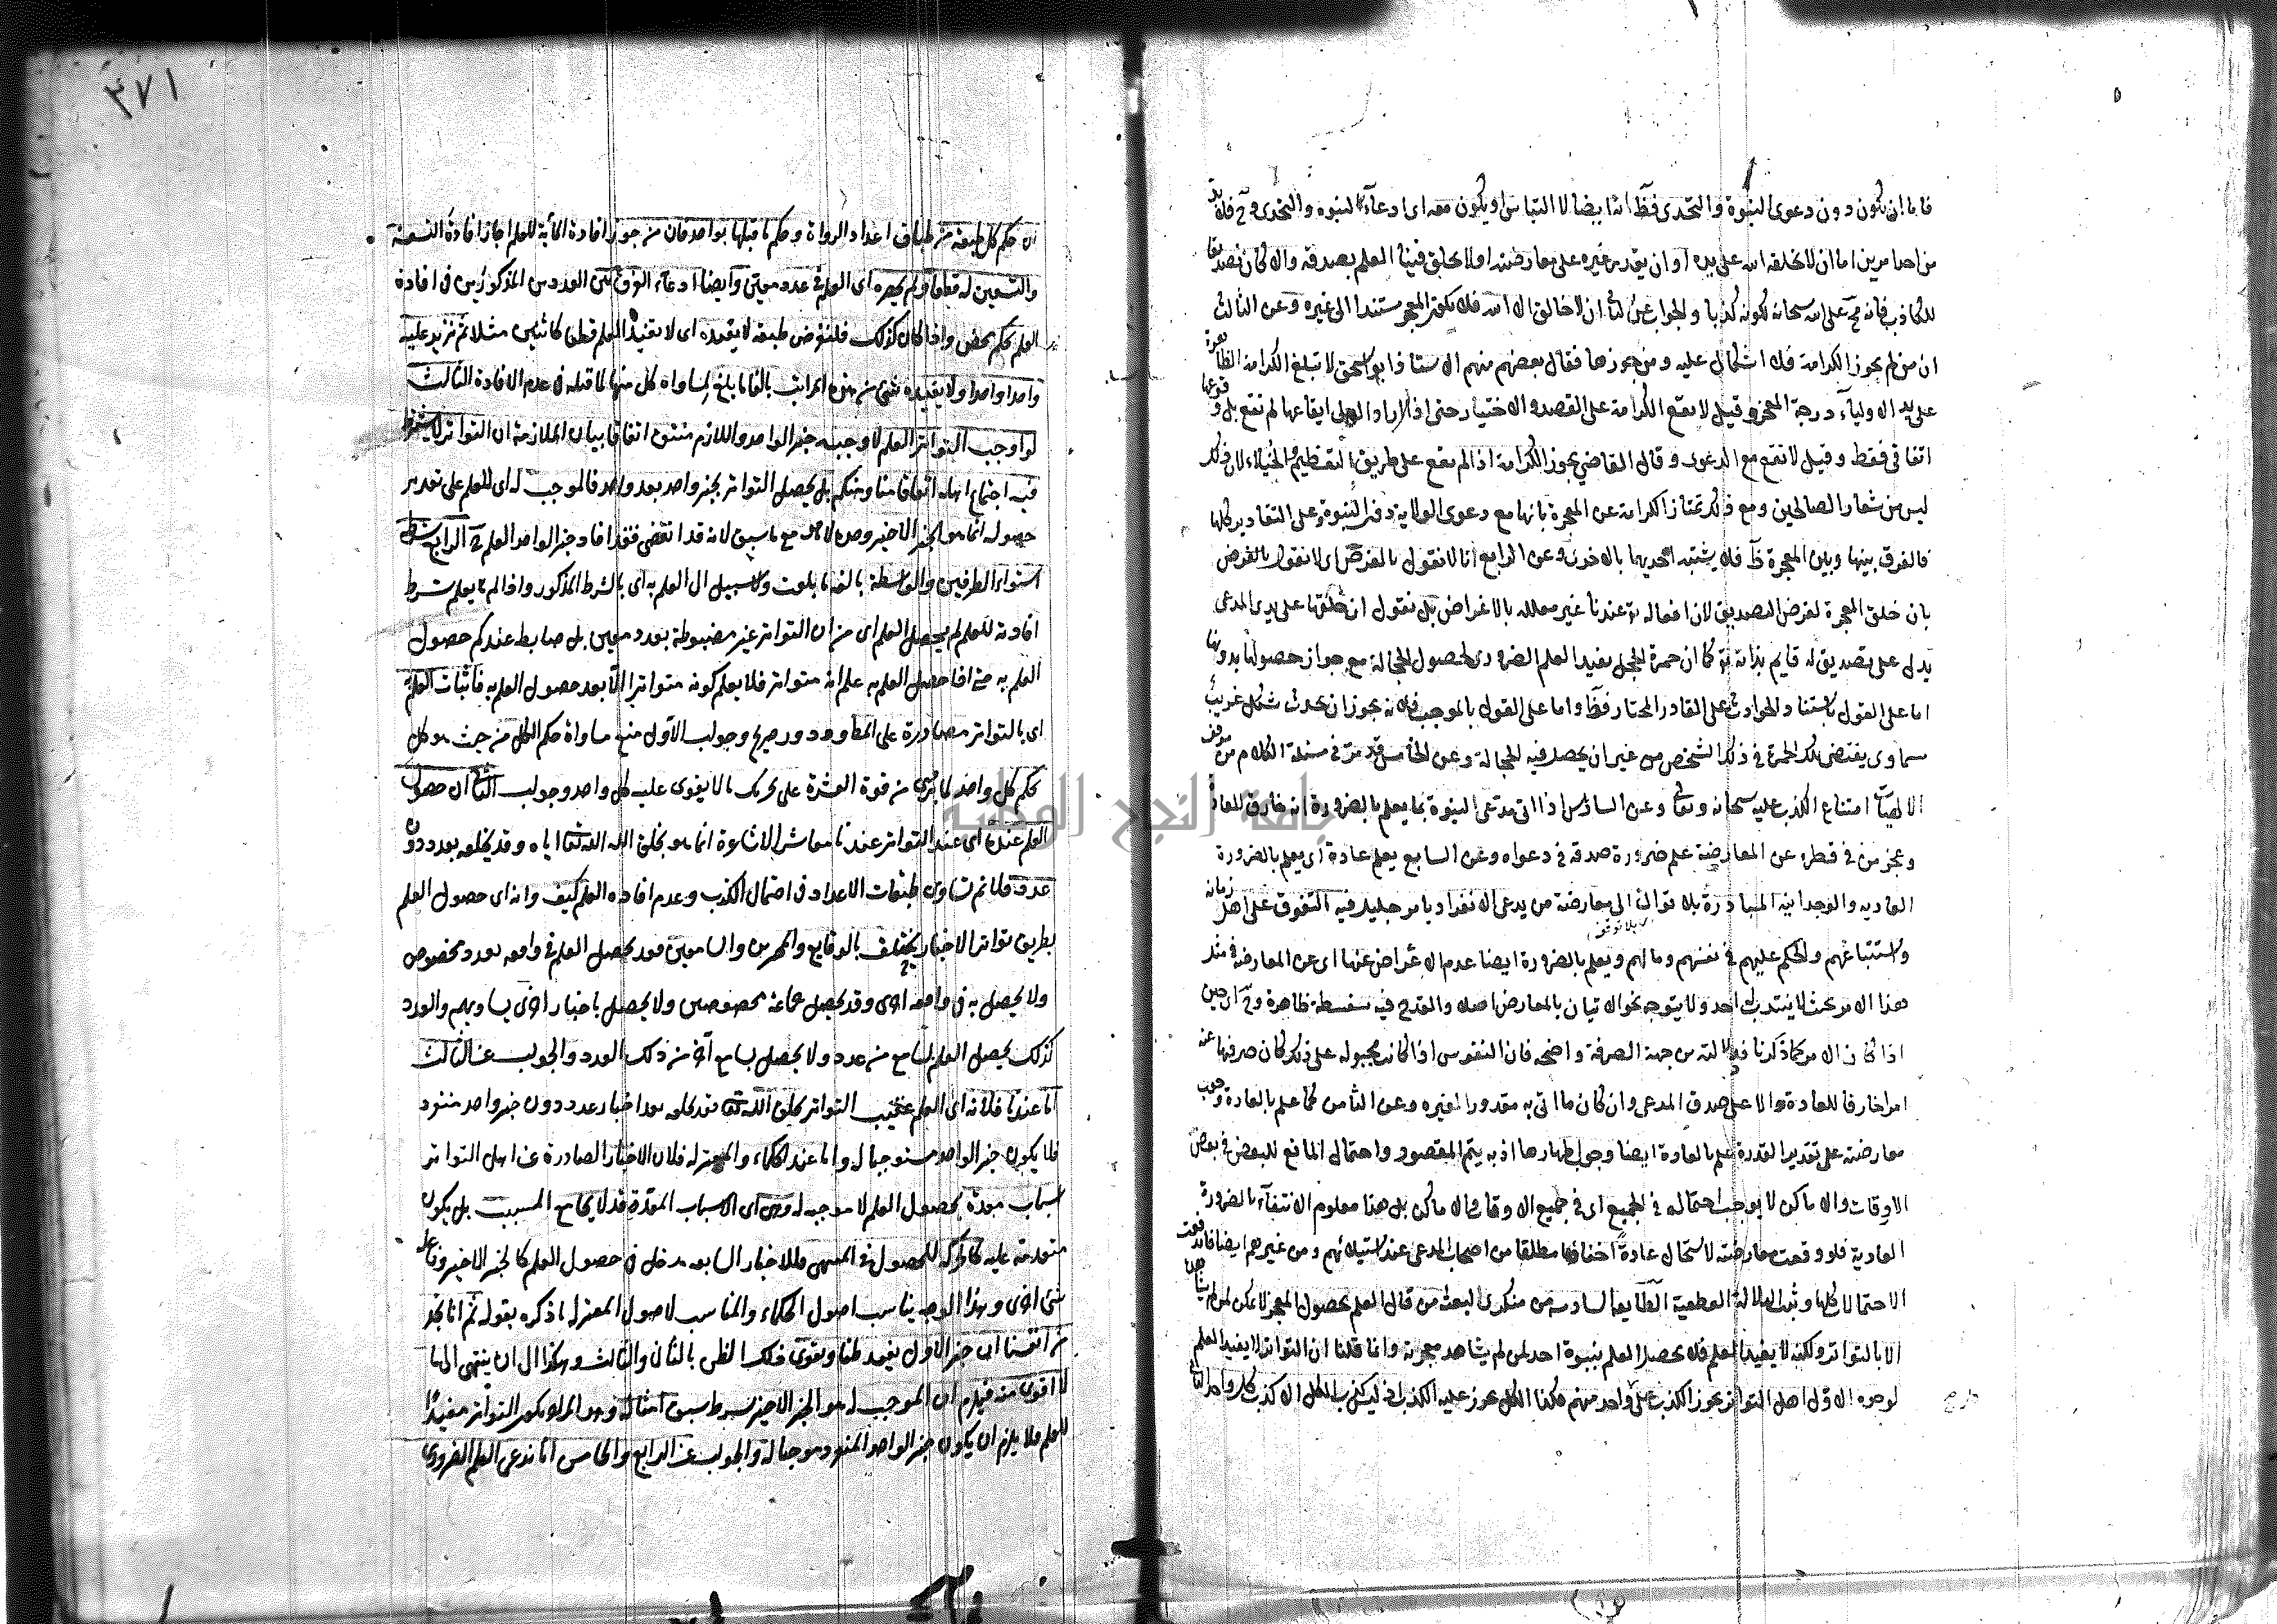 فاما ان يكون دون دعوى النبوة والتحدى فظ انه ايضا لا التباس او يكون معه اى ادعاء النبوة والتحدى وح فلا بد
من احد امرين اما ان لا يخلقه الله على يده او ان يقدر غيره على معارضته او لا يخلق فينا العلم بصدقه والا كان تصديقا
للكاذب فانه مح على الله سبحانه لكونه كذبا والجواب عن الثانى ان لا خالق الا الله فلا يكون المعجز مستندا الى غيره وعن الثالث
ان من لم يجوز الكرامة فلا اشكال عليه ومن جوزها فقال بعضهم منهم الاستاذ ابو اسحق لا تبلغ الكرامة الظاهرة
على يد الاولياء درجة المعجز وقيل لا يقع الكرامة على القصد والاختيار حتى اذا اراد الولى ايقاعها لم تقع بل وقوعها
اتفاقى فقط وقيل لا تقع مع الدعوى وقال القاضى يجوز الكرامة اذا لم يقع على طريق التعظيم والخيلاء لان ذلك
ليس من شعار الصالحين ومع ذلك تمتاز الكرامة عن المعجزة بانها مع دعوى الولاية دون النبوة وعلى التقادير كلها
فالفرق بينها وبين المعجزة ظ فلا يشتبه احديهما بالاخرى وعن الرابع انا لا نقول بالغرض اى لا نقول بالغرض
بان خلق المعجزة لغرض التصديق لان افعاله تع عندنا غير معللة بالاغراض بل نقول ان خلقها على يدى المدعى
يدل على تصديق له قايم بذاته تع كما ان حمرة الخجل يفيد العلم الضرورى لحصول الخجالة مع جواز حصولها بدونها
اما على القول باستناد الحوادث على القادر المختار فظ واما على القول بالموجب فلانه يجوز ان يحدث شكل غريب
سماوى يقتضى تلك الحمرة فى ذلك الشخص من غير ان يحصل فيه الخجالة وعن الخامس قد مر فى مسئلة الكلام من موقف
الالهيات امتناع الكذب عليه سبحانه وتعالى وعن السادس اذا اتى مدعى النبوة بما يعلم بالضرورة انه خارق للعادة
وعجز من فى قطره عن المعارضة علم ضرورة صدقه فى دعواه وعن السابع يعلم عادة اى يعلم بالضرورة
العادية والوجدانية المبادرة بلا توان الى معارضة من يدعى الانفراد بامر جليل فيه التفوق على اهل زمانه
بلا توقف
واستتباعهم والحكم عليهم فى نفسهم ومالهم ويعلم بالضرورة ايضا عدم الاعراض عنها اى عن المعارضة فى مثل
هذا الامر بحيث لا ينتدب له احد ولا يتوجه نحو الاتيان بالمعارض اصلا والقدح فيه سفسطة ظاهرة وح اى حين
اذا كان الامر كما ذكرنا فدلالته من جهة الصرفة واضحة فان النفوس اذا كانت مجبولة على ذلك كان صرفها عنه
امرا خارقا للعادة دالا على صدق المدعى وان كان ما اتى به مقدورا لغيره وعن الثامن كما علم بالعادة وجوب
معارضته على تقدير القدرة علم بالعادة ايضا وجوب اظهارها اذ به يتم المقصود واحتمال المانع للبعض فى بعض
الاوقات والاماكن لا يوجب احتماله فى الجميع اى فى جميع الاوقات والاماكن بل هذا معلوم الانتفاء بالضرورة
العادية فلو وقعت معارضته لاستحال عادة اخفاؤها مطلقا من اصحاب المدعى عند استيلائهم ومن غيرهم ايضا فاندفعت
الاحتمالات كلها وثبت الدلالة القطعية الطايفة السادسة من منكرى البعثة من قال العلم بحصول المعجز لا يمكن لمن لم يشاهده
الا بالتواتر ولكنه لا يفيد العلم فلا يحصل العلم بنبوة احد لمن لم يشاهد معجزته وانما قلنا ان التواتر لا يفيد العلم
لوجوه الاول اهل التواتر يجوز الكذب على كل واحد منهم فكذا الكل يجوز عليه الكذب اذ ليس كذب الكل الا كذب كل واحد الثانى
٣٧١
ان حكم كل طبقة من طبقات اعداد الرواة وحكم ما قبلها بواحد فان من جوز افادة المائة للعلم اجاز افادة التسعة
والتسعين له قطعا ولم يحصره اى العلم فى عدد معين وايضا ادعاء الفرق بين العددين المذكورين فى افادة
العلم تحكم محض واذا كان كذلك فلنفرض طبقة لا يفيده اى لا يفيد العلم قطعا كاثنين مثلا ثم نزيد عليه
واحدا واحدا ولا يفيده شئ من هذه المراتب بالغا ما بلغ لمساواة كل منها لما قبله فى عدم الافادة الثالث
لو اوجب التواتر العلم لاوجبه خبر الواحد واللازم منتف اتفاقا بيان الملازمة ان التواتر لا يشترط
فيه اجتماع اهله اتفاقا منا ومنكم بل يحصل التواتر بخبر واحد بعد واحد فالموجب له اى للعلم على تقدير
حصوله انما هو الخبر الاخير وحده لا هو مع ما سبق لانه قد انقضى فقد افاد خبر الواحد العلم الرابع شرط
استواء الطرفين والواسطة بالغة ما بلغت ولا سبيل الى العلم به اى بالشرط المذكور واذا لم يعلم شرط
افادته للعلم لم يحصل العلم اى من ان التواتر غير مضبوطة بعدد معين بل ضابطه عندكم حصول
العلم به حتى اذا حصل العلم به علم انه متواتر فلا يعلم كونه متواترا الا بعد حصول العلم به فاثبات العلم به
اى بالتواتر مصادرة على المط ودور صريح وجواب الاول منع مساواة حكم الكل من حيث هو كل
بحكم كل واحد لما يرى من قوة العشرة على تحريك ما لا يقوى عليه كل واحد وجواب الثانى ان حصول
العلم عنده اى عند التواتر عندنا معاشر الاشاعرة انما هو بخلق الله تعالى اياه وقد يخلقه بعدد دون
عدد فلا نم تساوى طبقات الاعداد فى احتمال الكذب وعدم افادة العلم كيف وانه اى حصول العلم
بطريق تواتر الاخبار يختلف بالوقايع والمخبرين والسامعين فقد يحصل العلم فى واقعة بعدد مخصوص
ولا يحصل به فى واقعة اخرى وقد يحصل بجماعة مخصوصين ولا يحصل باخبار اخرى يساويهم والعدد
كذلك يحصل العلم لسامع من عدد ولا يحصل لسامع آخر من ذلك العدد والجواب عن الثالث
اما عندنا فلانه اى العلم عقيب التواتر بخلق الله تع فقد يخلقه بعد اخبار عدد دون خبر واحد منفرد
فلا يكون خبر الواحد مستوجبا له واما عند الحكماء والمعتزلة فلان الاخبار الصادرة عن اهل التواتر
اسباب معدة لحصول العلم لا موجبة له وهى اى الاسباب المعدة قد لا يجامع المسبب بل يكون
متقدمة عليه كالحركة للحصول فى المنتهى فللاخبار السابقة مدخل فى حصول العلم كالخبر الاخير وفاعله
شئ اخر وهذا الوجه يناسب اصول الحكماء والمناسب لاصول المعتزلة ما ذكره بقوله ثم انا نجد
من انفسنا ان خبر الاول يفيد ظنا ويقوى ذلك الظن بالثانى والثالث وهكذا الى ان ينتهى الى ما
لا اقوى منه فيلزم ان الموجب له هو الخبر الاخير بشرط سبق امثاله وهو المراد بكون التواتر مفيدا
للعلم فلا يلزم ان يكون خبر الواحد المنفرد موجبا له والجواب عن الرابع والخامس انا ندعى العلم الضرورى
جامعة النجاح الوطنية